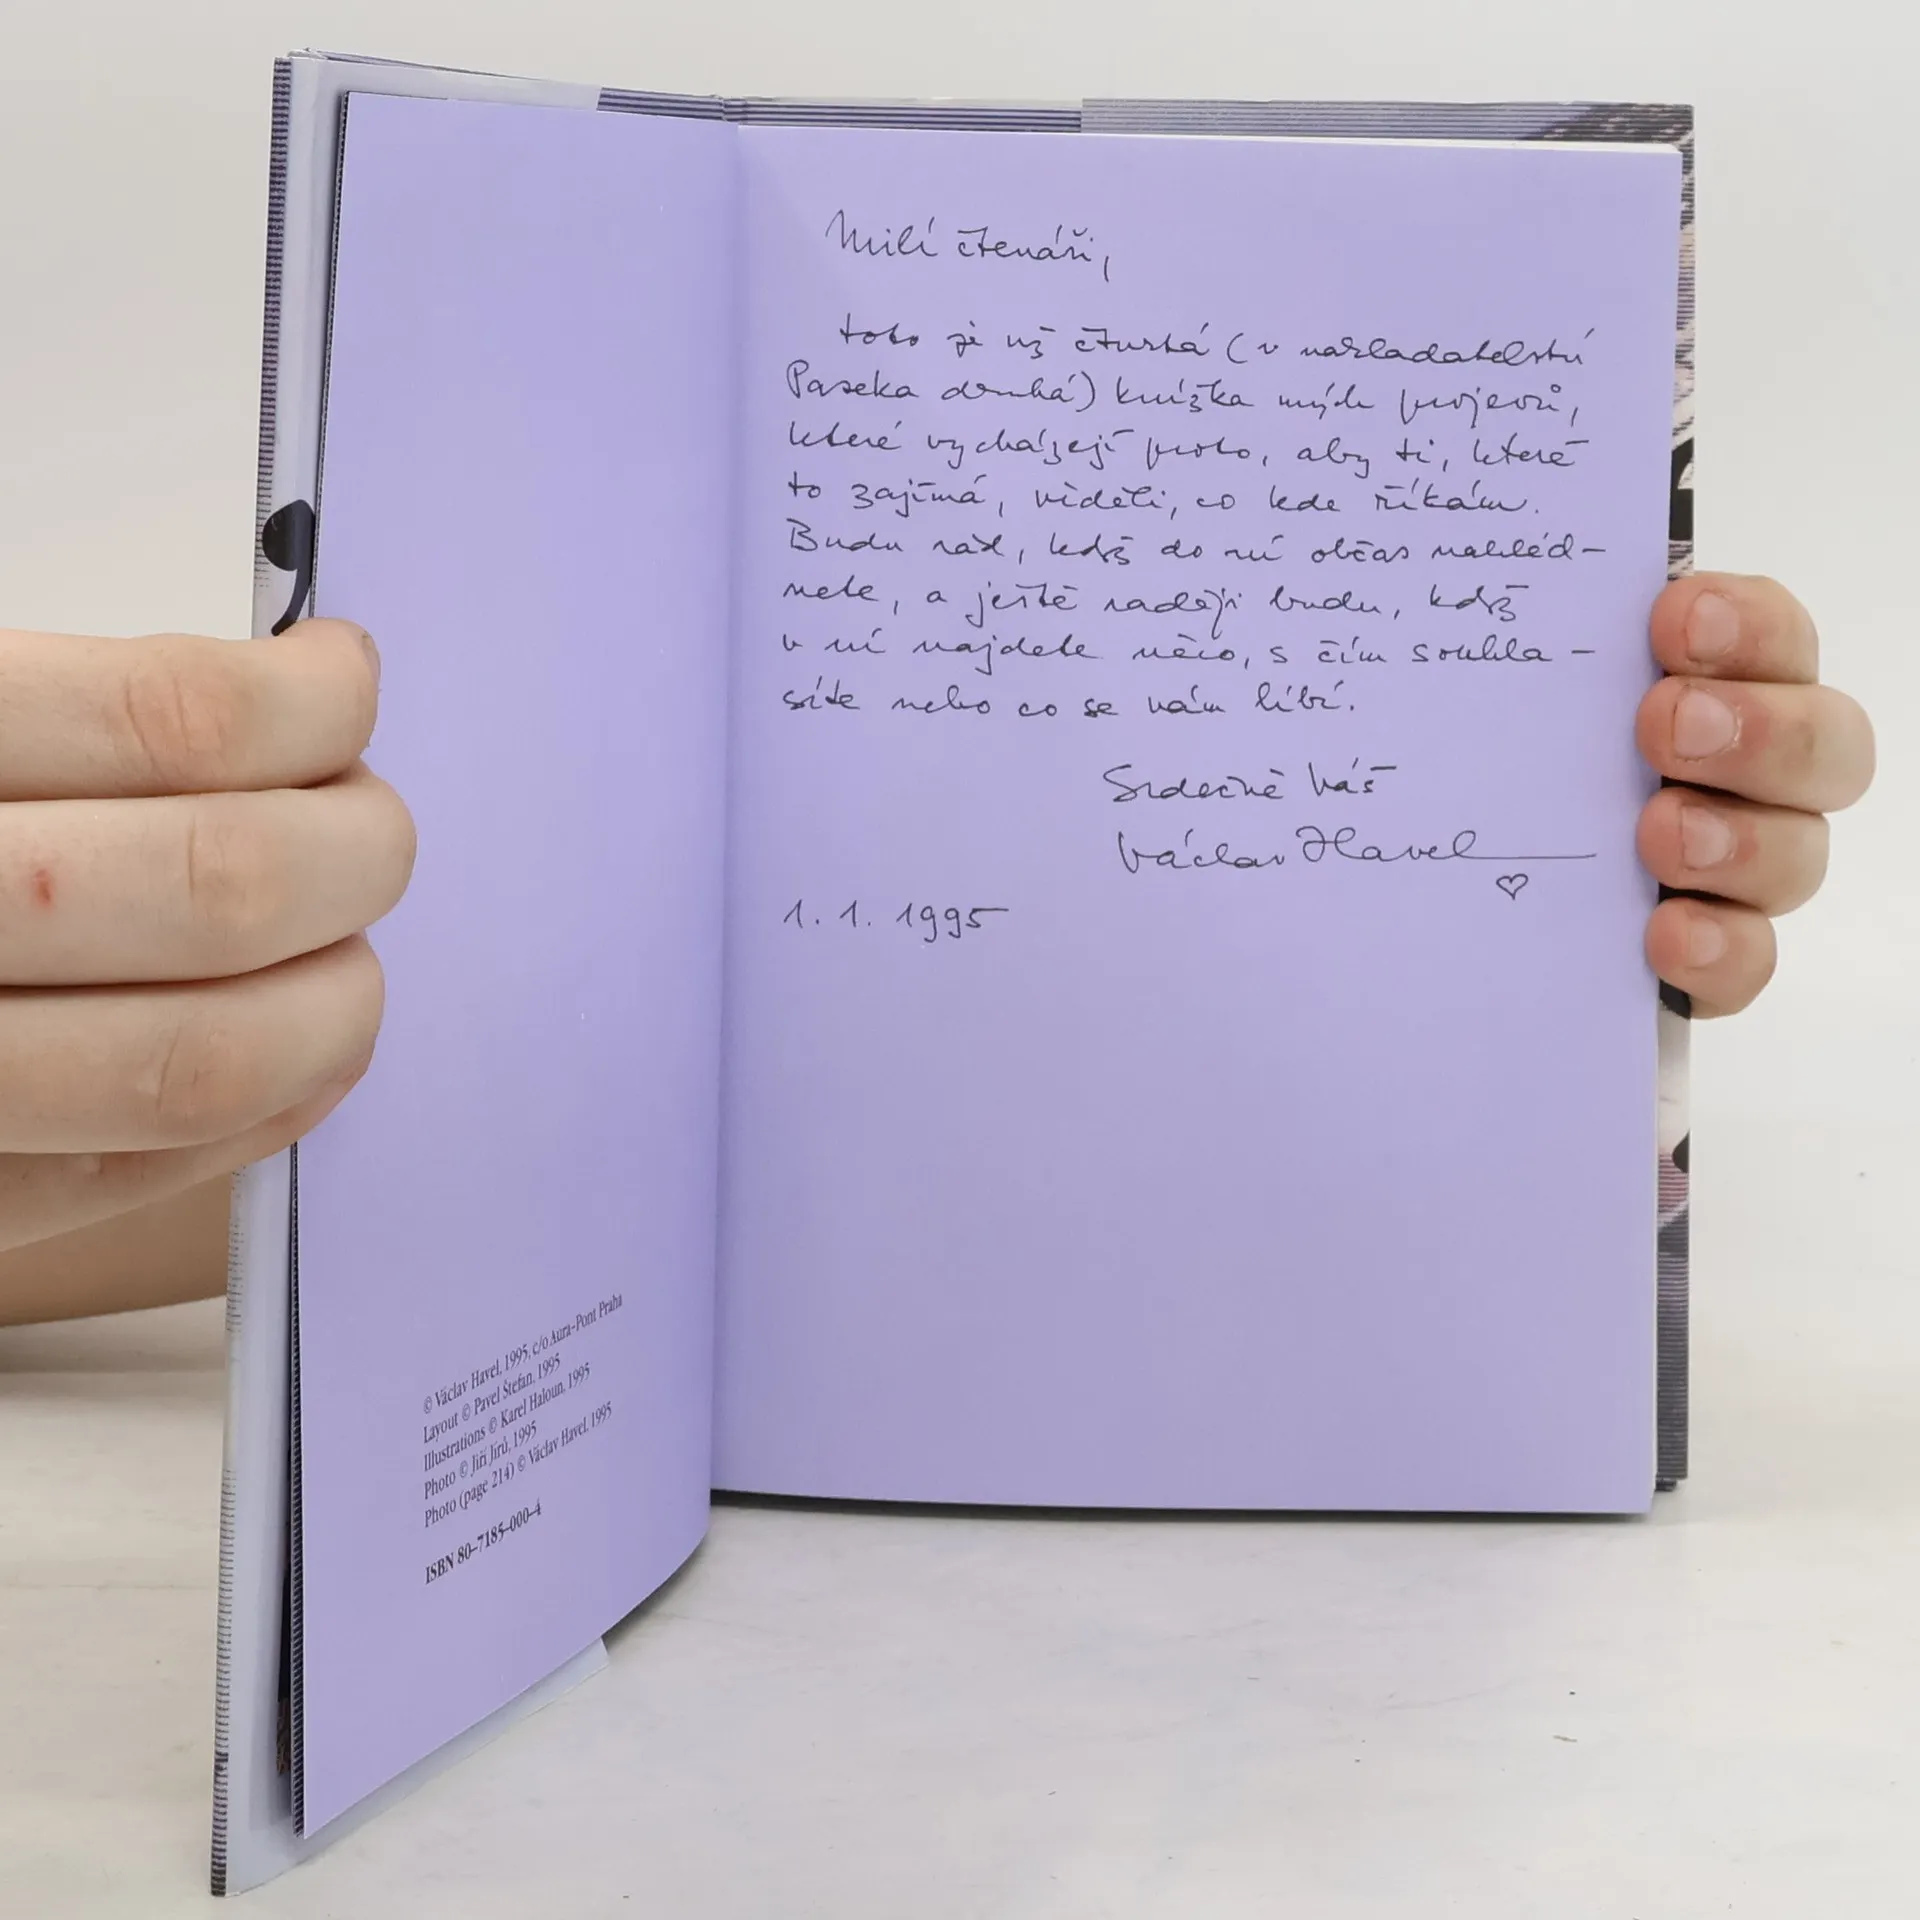 © Václav Havel, 1995, c/o Aura-Pont Praha
Layout © Pavel Štefan, 1995
Illustrations © Karel Haloun, 1995
Photo © Jiří Jirů, 1995
Photo (page 214) © Václav Havel, 1995
ISBN 80–7185–000–4
Milí čtenáři,
toto je už čtvrtá (v nakladatelství
Paseka druhá) knížka mých projevů,
které vycházejí proto, aby ti, které
to zajímá, věděli, co kde říkám.
Budu rád, když do ní občas nahléd-
nete, a ještě raději budu, když
v ní najdete něco, s čím souhla-
síte nebo co se vám líbí.
Srdečně Váš
Václav Havel
1. 1. 1995